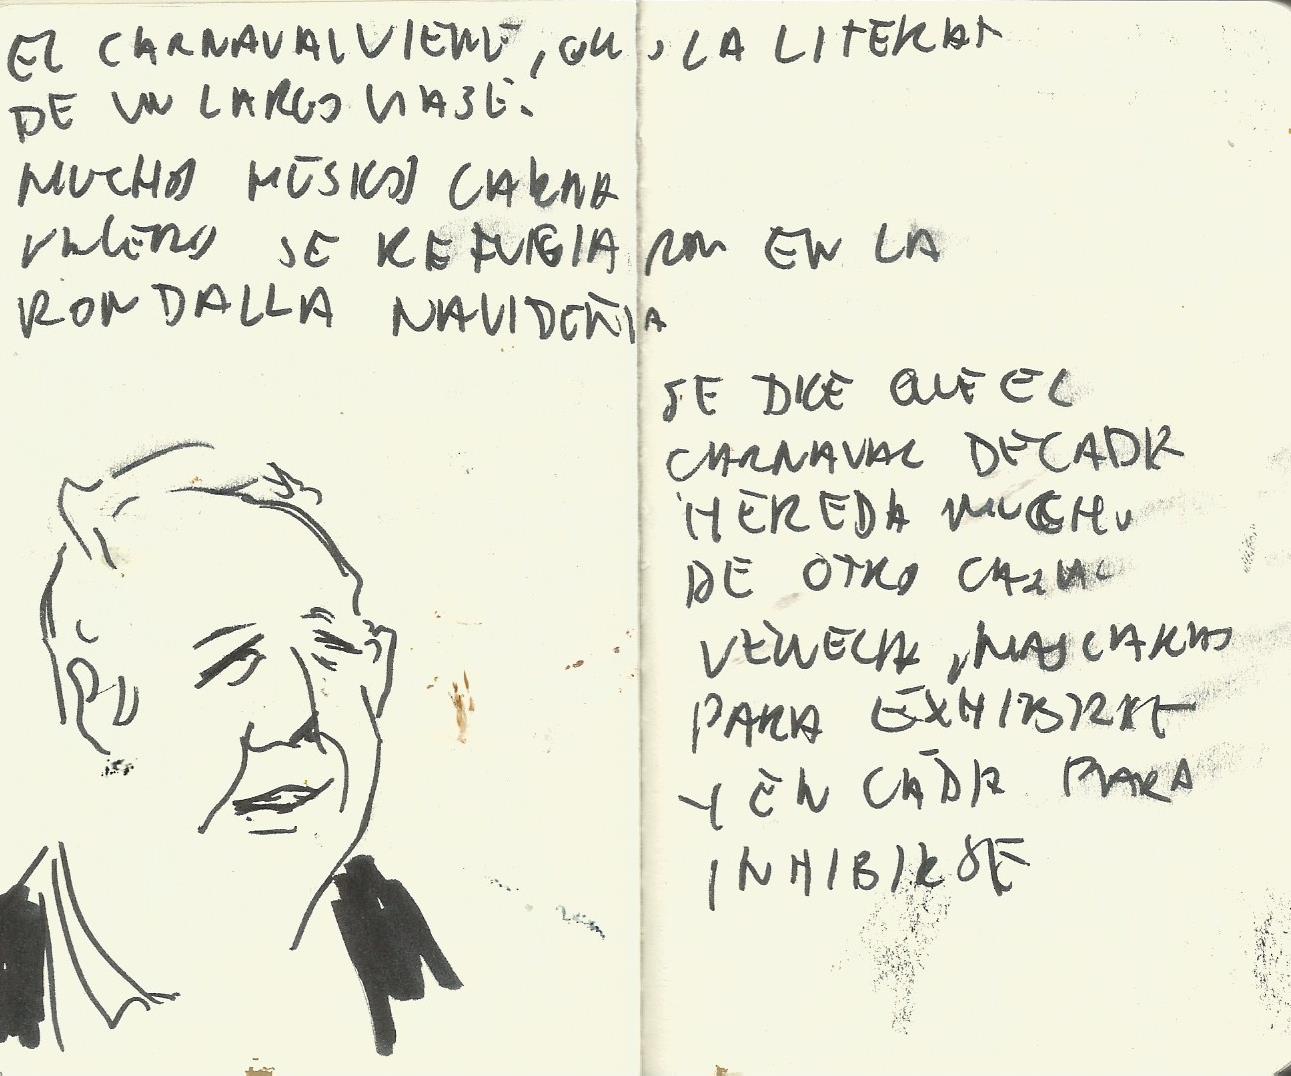 EL CARNAVAL VIENE, LA LITERAT
DE UN LARGO VIAJE.
MUCHOS MÚSICOS CARNA
VALEROS SE REFUGIARON EN LA
RONDALLA NAVIDEÑA
SE DICE QUE EL
CARNAVAL DE CADIZ
HEREDA MUCHO
DE OTRO
VENECIA, MASCARAS
PARA EXHIBIRSE
Y EN CÁDIZ PARA
INHIBIRSE